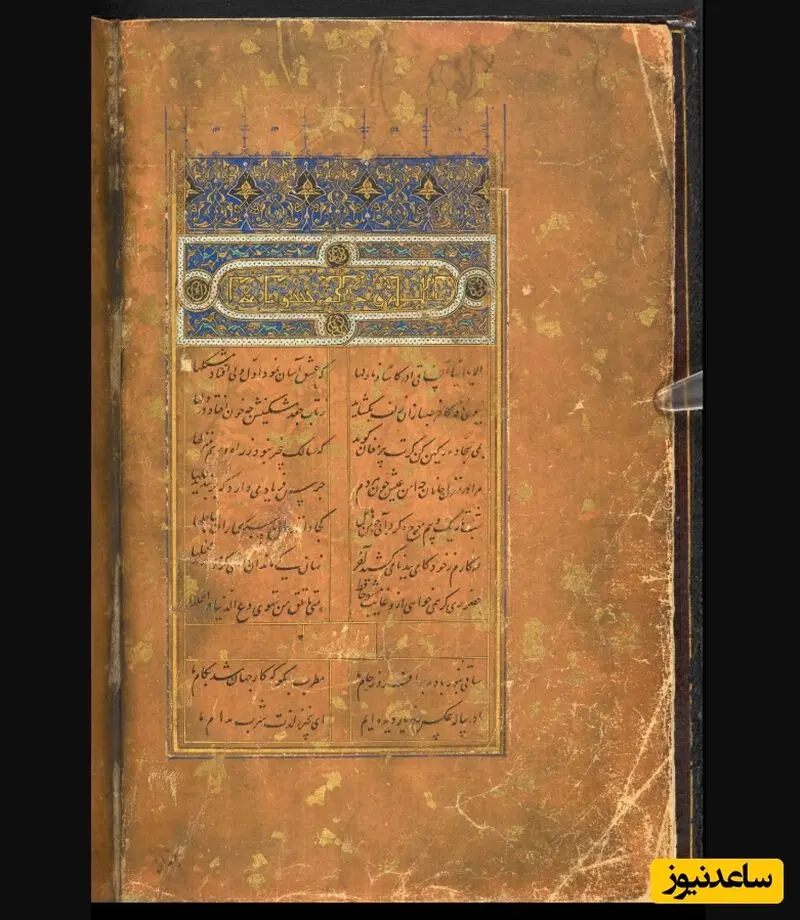 الا یا ایها الساقی ادر کاسا و ناولها که عشق آسان نمود اول ولی افتاد مشکلها
ببوی نافه کاخر صبا زان طره بگشاید ز تاب جعد مشکینش چه خون افتاد در دلها
بمی سجاده رنگین کن گرت پیر مغان گوید که سالک بی‌خبر نبود ز راه و رسم منزلها
مرا در منزل جانان چه امن عیش چون هر دم جرس فریاد می دارد که بربندید محملها
شب تاریک و بیم موج و گردابی چنین هایل کجا دانند حال ما سبکباران ساحلها
همه کارم ز خود کامی ببدنامی کشید آخر نهان کی ماند آن رازی کزو سازند محفلها
حضوری گر همی خواهی ازو غایب مشو حافظ متی ما تلق من تهوی دع الدنیا و اهملها
ساقی بنور باده برافروز جام ما مطرب بگو که کار جهان شد بکام ما
ما در پیاله عکس رخ یار دیده ایم ای بیخبر ز لذت شرب مدام ما
ساعدنیوز